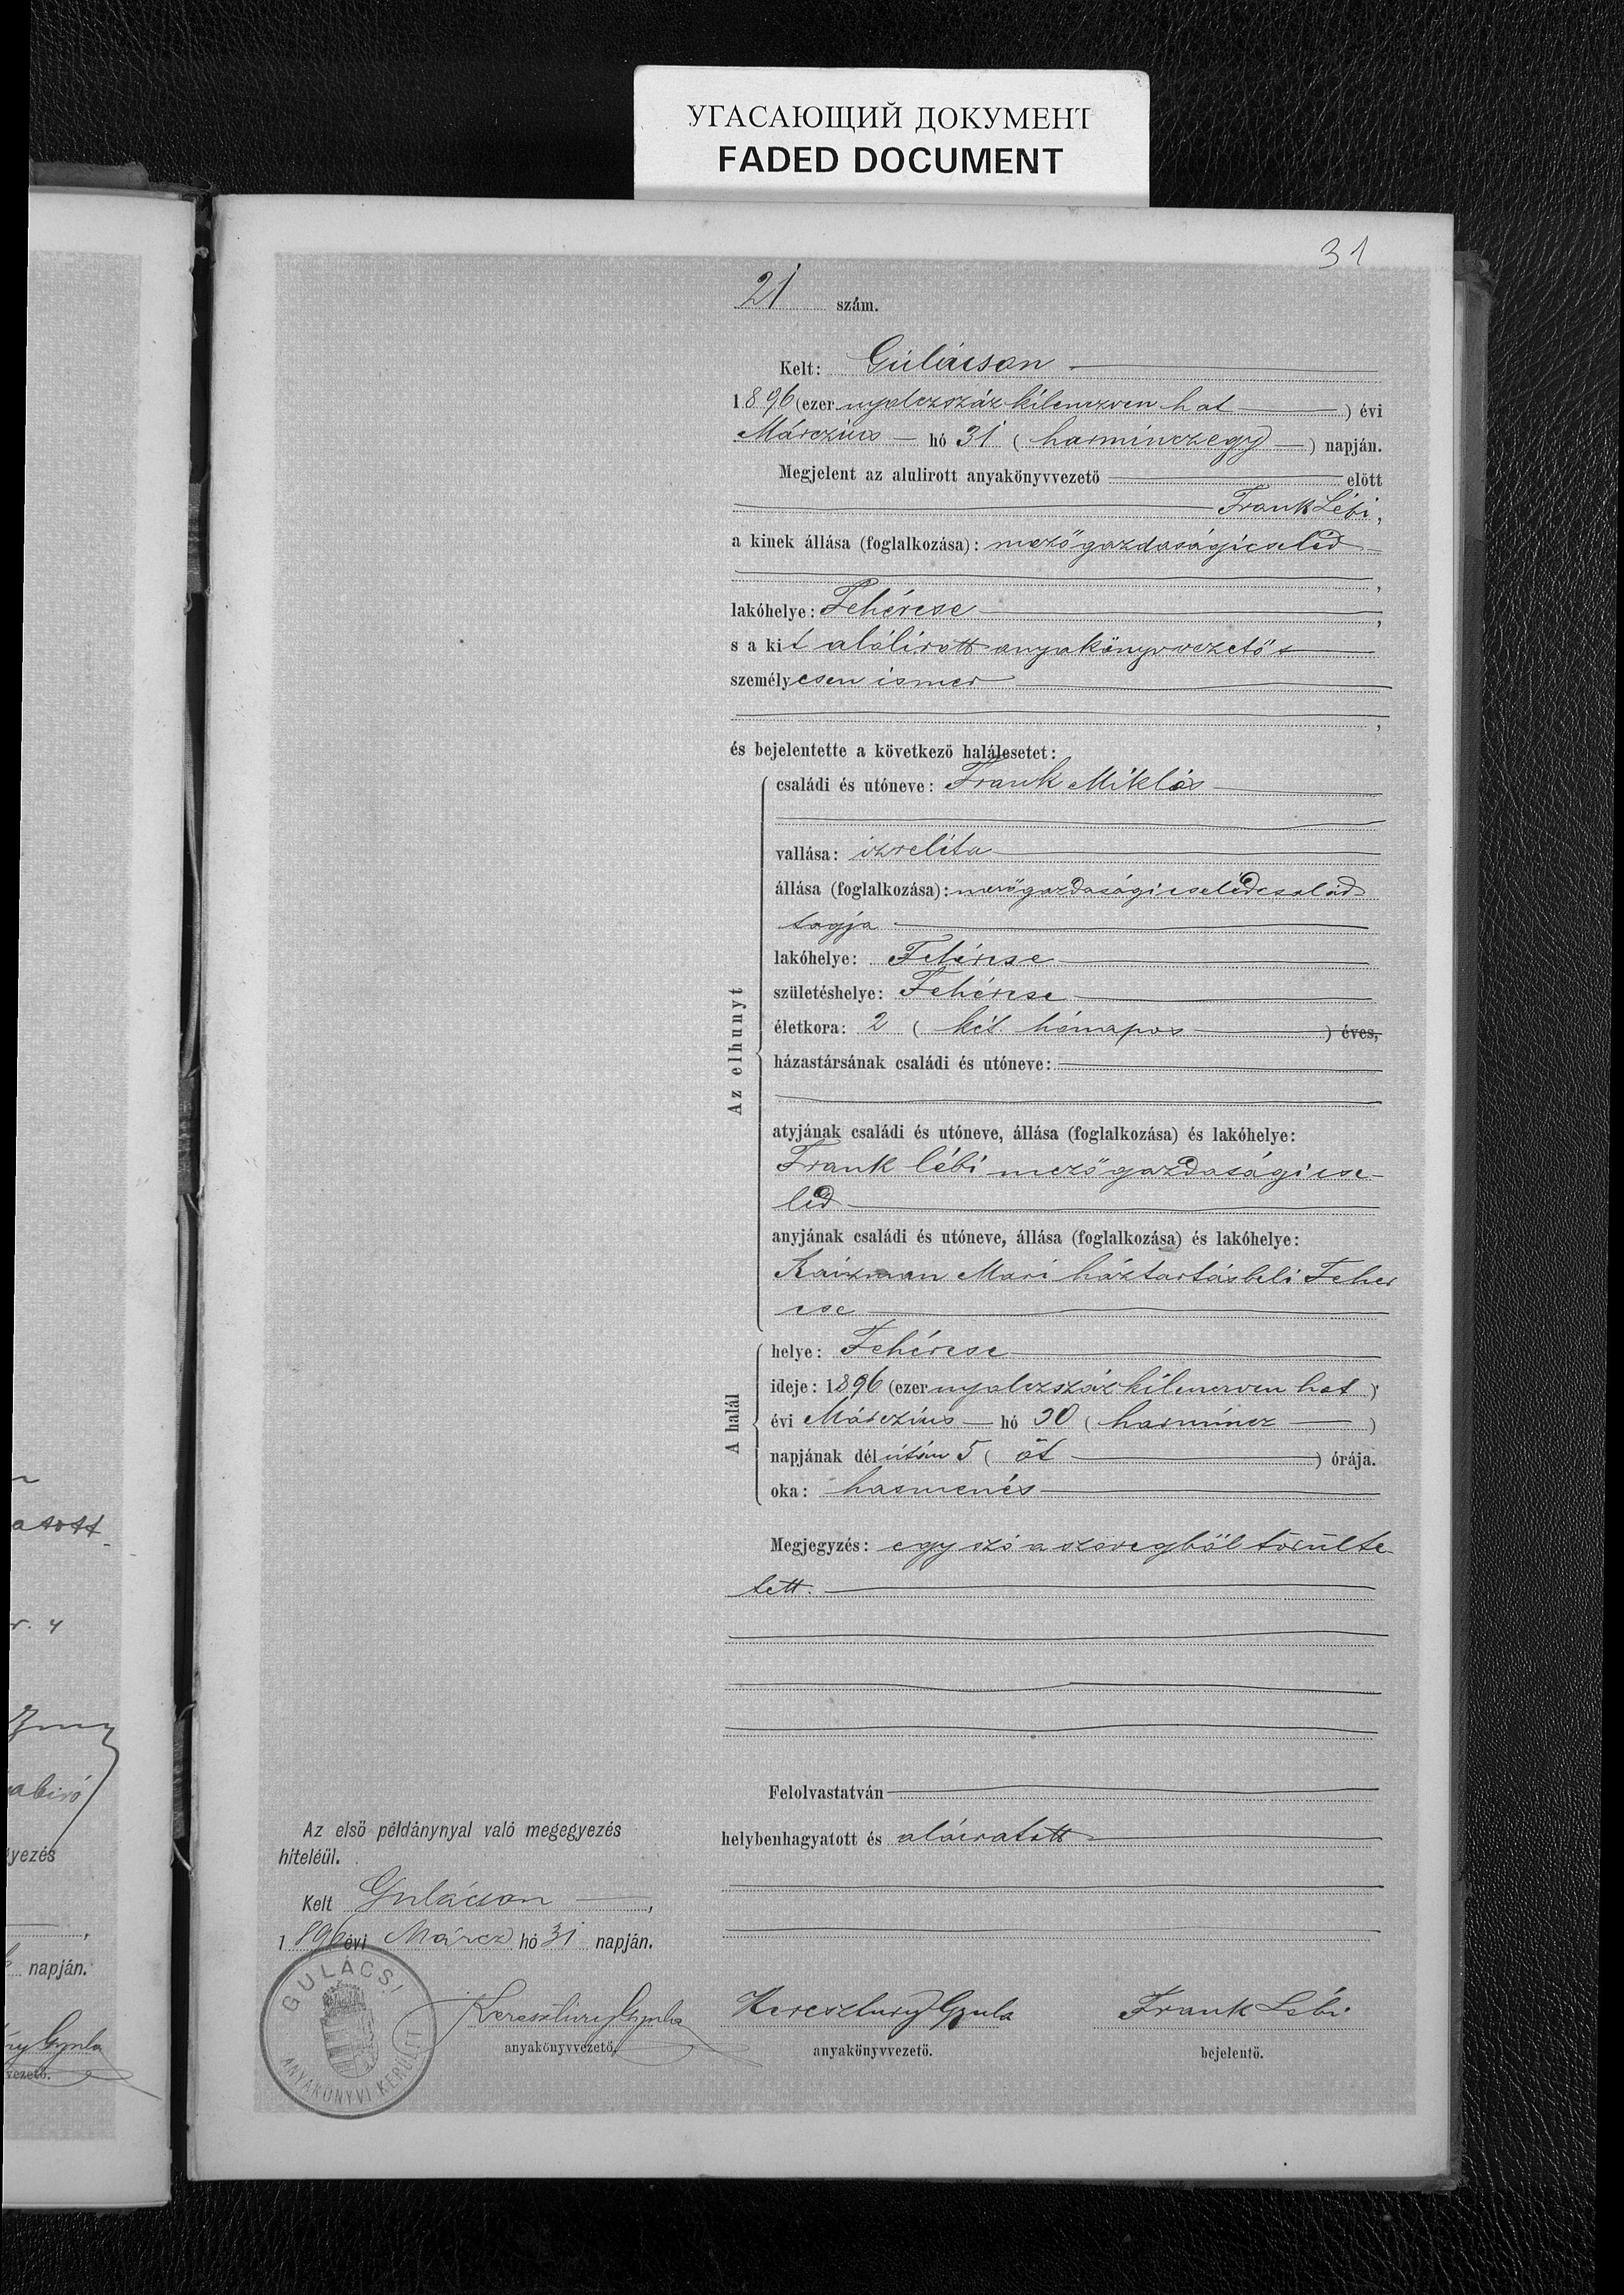 УГАСАЮЩИЙ ДОКУМЕНТ
FADED DOCUMENT
31
21 szám.
Kelt: Gulácson
1896 (ezer nyolczszáz kilenczven hat ) évi
Márczius hó 31 ( harminczegy ) napján.
Megjelent az alulirott anyakönyvvezető előtt
Frank Lébi,
a kinek állása (foglalkozása): mezőgazdasági cseléd
,
lakóhelye: Fehércse ,
s a kit alólirott anyakönyvvezető
személyesen ismer
,
és bejelentette a következő halálesetet:
Az elhunyt
családi és utóneve: Frank Miklós
vallása: izrelita
állása (foglalkozása): mezőgazdasági cselédcsalád
tagja
lakóhelye: Fehércse
születéshelye: Fehércse
életkora: 2 ( két hónapos ) éves,
házastársának családi és utóneve:
atyjának családi és utóneve, állása (foglalkozása) és lakóhelye:
Frank lébi mezőgazdasági cse-
léd
anyjának családi és utóneve, állása (foglalkozása) és lakóhelye:
Kaizman Mari háztartásbeli Fehér
cse
A halál
helye: Fehércse
ideje: 1896 (ezer nyolczszáz kilenczven hat )
évi Márczius hó 30 ( harmincz )
napjának délután 5 ( öt ) órája.
oka: hasmenés
Megjegyzés: egy szó a szövegből törülte-
tett.
Felolvastatván
helybenhagyatott és aláiratott
Az első példánynyal való megegyezés
hiteléül.
Kelt Gulácson ,
1896 évi Márcz hó 31 napján.
GULÁCSI
ANYAKÖNYVI KERÜLET
Keresztury Gyula
anyakönyvvezető.
Keresztury Gyula
anyakönyvvezető.
Frank Lébi
bejelentő.
atott
r. 4
abiró
yezés
,
napján.
ry Gyula
vezető.